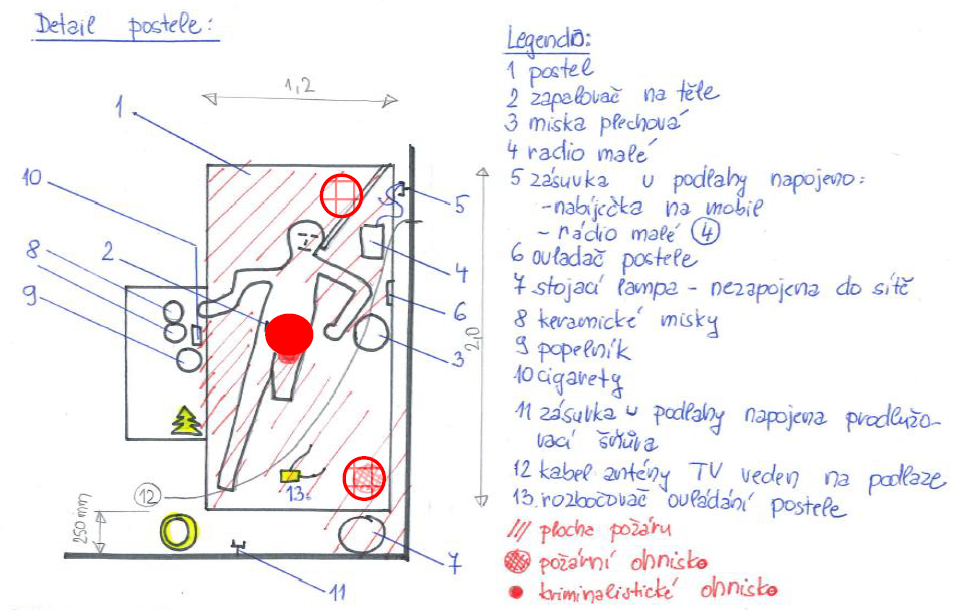 Detail postele:
1,2
1
10
8
8
9
2
5
4
6
3
2,0
12
13.
250 mm
7
11
Legenda:
1 postel
2 zapalovač na těle
3 miska plechová
4 radio malé
5 zásuvka u podlahy napojeno:
- nabíječka na mobil
- rádio malé 4
6 ovladač postele
7 stojací lampa - nezapojena do sítě
8 keramické misky
9 popelník
10 cigarety
11 zásuvka u podlahy napojena prodlužo-
vací šňůra
12 kabel antény TV veden na podlaze
13. rozbočovač ovládání postele
/// plocha požáru
požární ohnisko
kriminalistické ohnisko